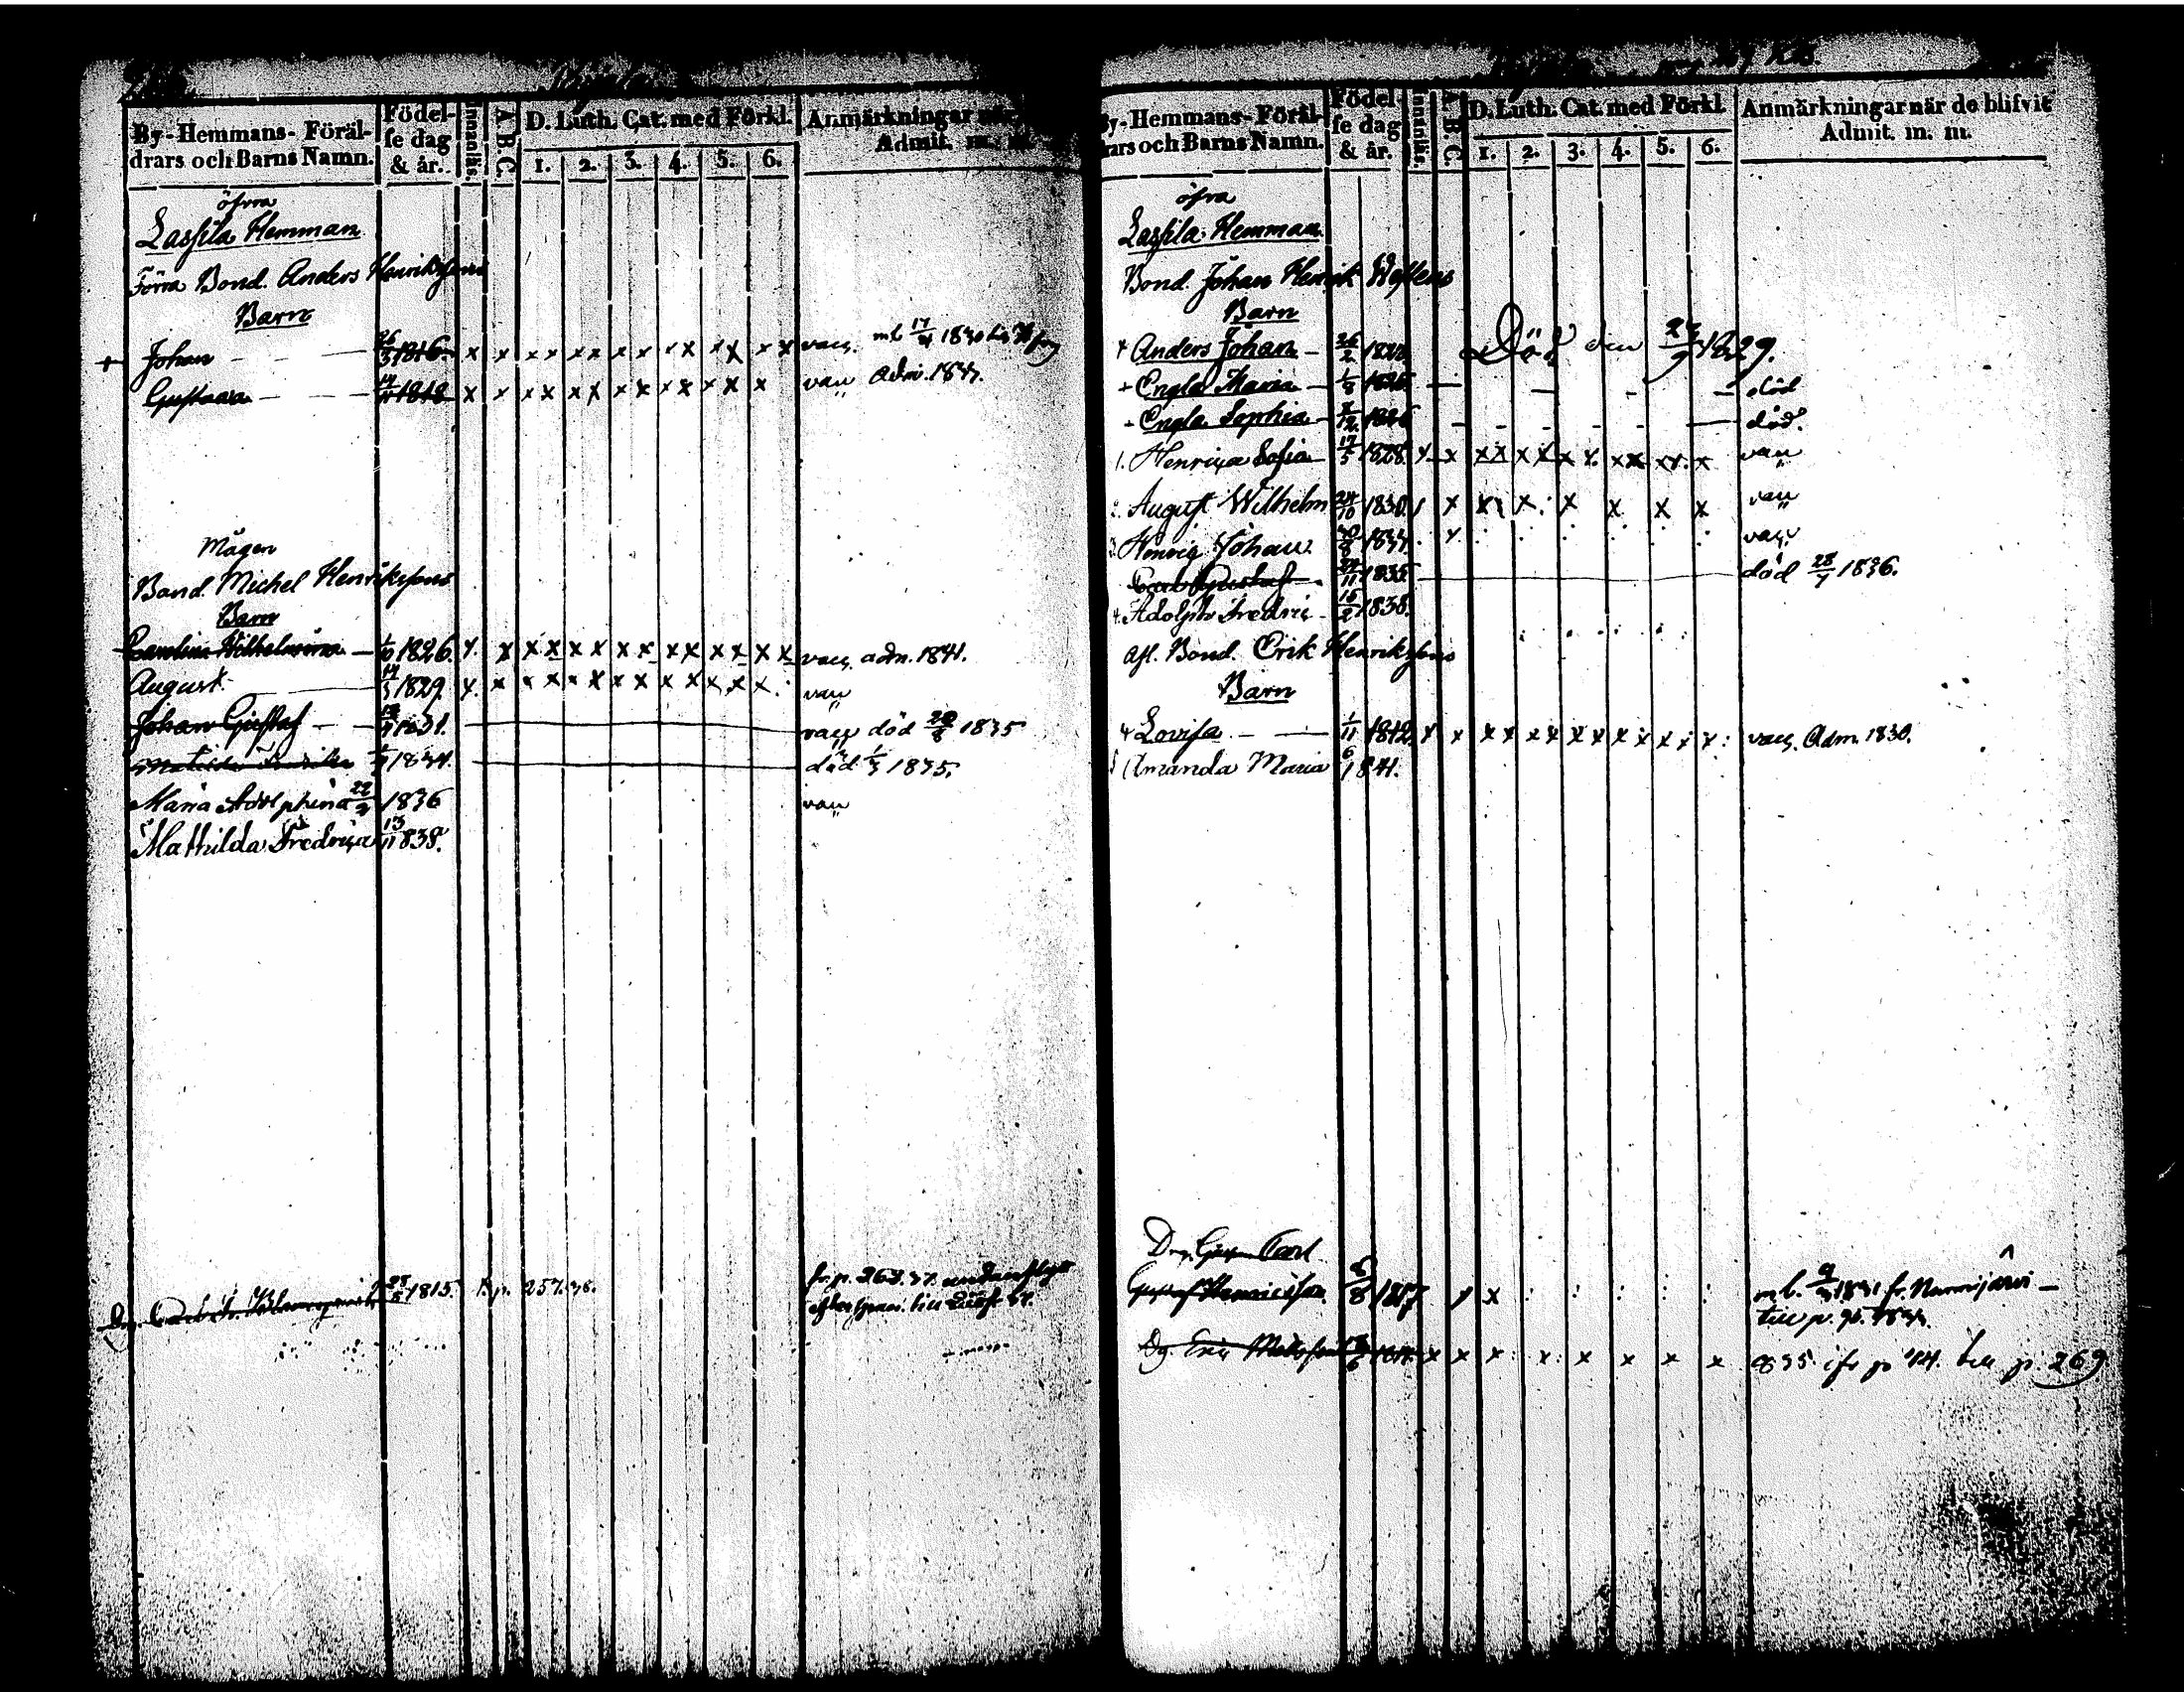 By-Hemmans-Föräl-
drars och Barns Namn.
Födel-
se dag
& år.
Innanläs.
A B C
D. Luth. Cat. med Förkl.
1. 2. 3. 4. 5. 6.
Anmärkningar
Admit. m.
öfvra
Lassila Hemman
Förra Bond. Anders Henrikssons
Barn
Johan 26/3 1816 x x x x x x x x x x x x x x vacc.
Gustava 1818 x x x x x x x x x x x x x vacc Adm.
Mågen
Bond. Michel Henrikssons
Barn
Carolina Wilhelmina 1826. x. x x x x x x x x x x x x x vacc. adm. 1841.
August 14/3 1829. x. x x x x x x x x x x x x. vacc
Johan Gustaf 1831. vacc död 20/8 1835
1834. död 1/3 1835.
Maria Adolphina 1836 vacc
Mathilda Fredrica 13/11 1838.
1815. 257.
By-Hemmans-Föräl-
drars och Barns Namn.
Födel-
se dag
& år.
Innanläs.
A. B. C.
D. Luth. Cat. med Förkl.
1. 2. 3. 4. 5. 6.
Anmärkningar när de blifvit
Admit. m. m.
öfvra
Lassila Hemman
Bond. Johan Henrik
Barn
Anders Johan 26/2 Död den 1829.
Engla Maria död
Engla Sophia död.
1. Henrica Sofia 17/5 1828. x x x x x x x x. x x x x. x vacc
2. August Wilhelm 24/10 1830. x x x x x x x vacc
3. Henric Johan x vacc.
Carl Gustaf 11 1835 död 28/7 1836.
4. Adolph Fredric 15/2 1838.
Afl. Bond. Erik Henrikssons
Barn
Lovisa 1/11 1812. x x x x x x x x x x x x x vacc. Adm. 1830.
5 Amanda Maria 1841.
Carl
Gustaf Henricsson 1817 x x
Erik Matsson x x x x x x x x till p. 269